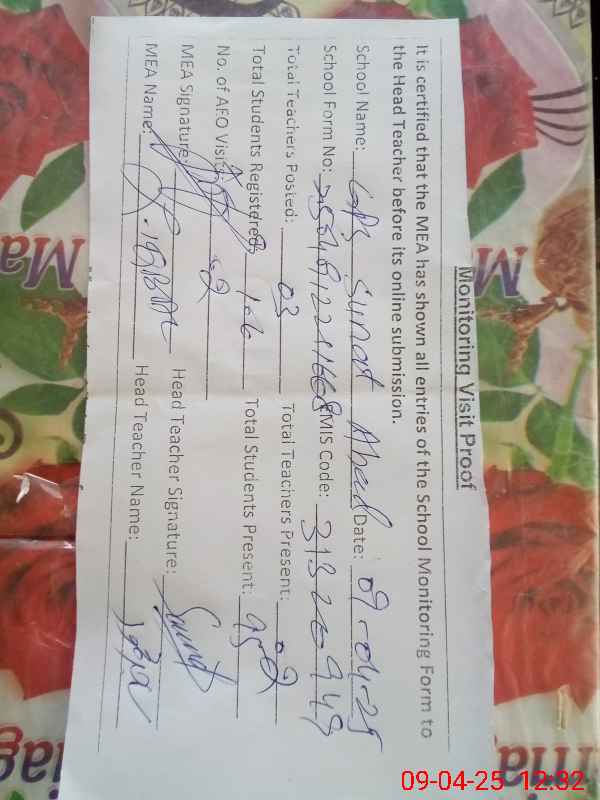 Monitoring Visit Proof
It is certified that the MEA has shown all entries of the School Monitoring Form to
the Head Teacher before its online submission.
School Name: GPS Abad Date: 09-04-25
School Form No: EMIS Code: 31320949
Total Teachers Posted: 03 Total Teachers Present: 02
Total Students Registered: Total Students Present: 95
No. of AFO Visit: 02
MEA Signature: Head Teacher Signature:
MEA Name: IQBAL Head Teacher Name:
09-04-25 12:32